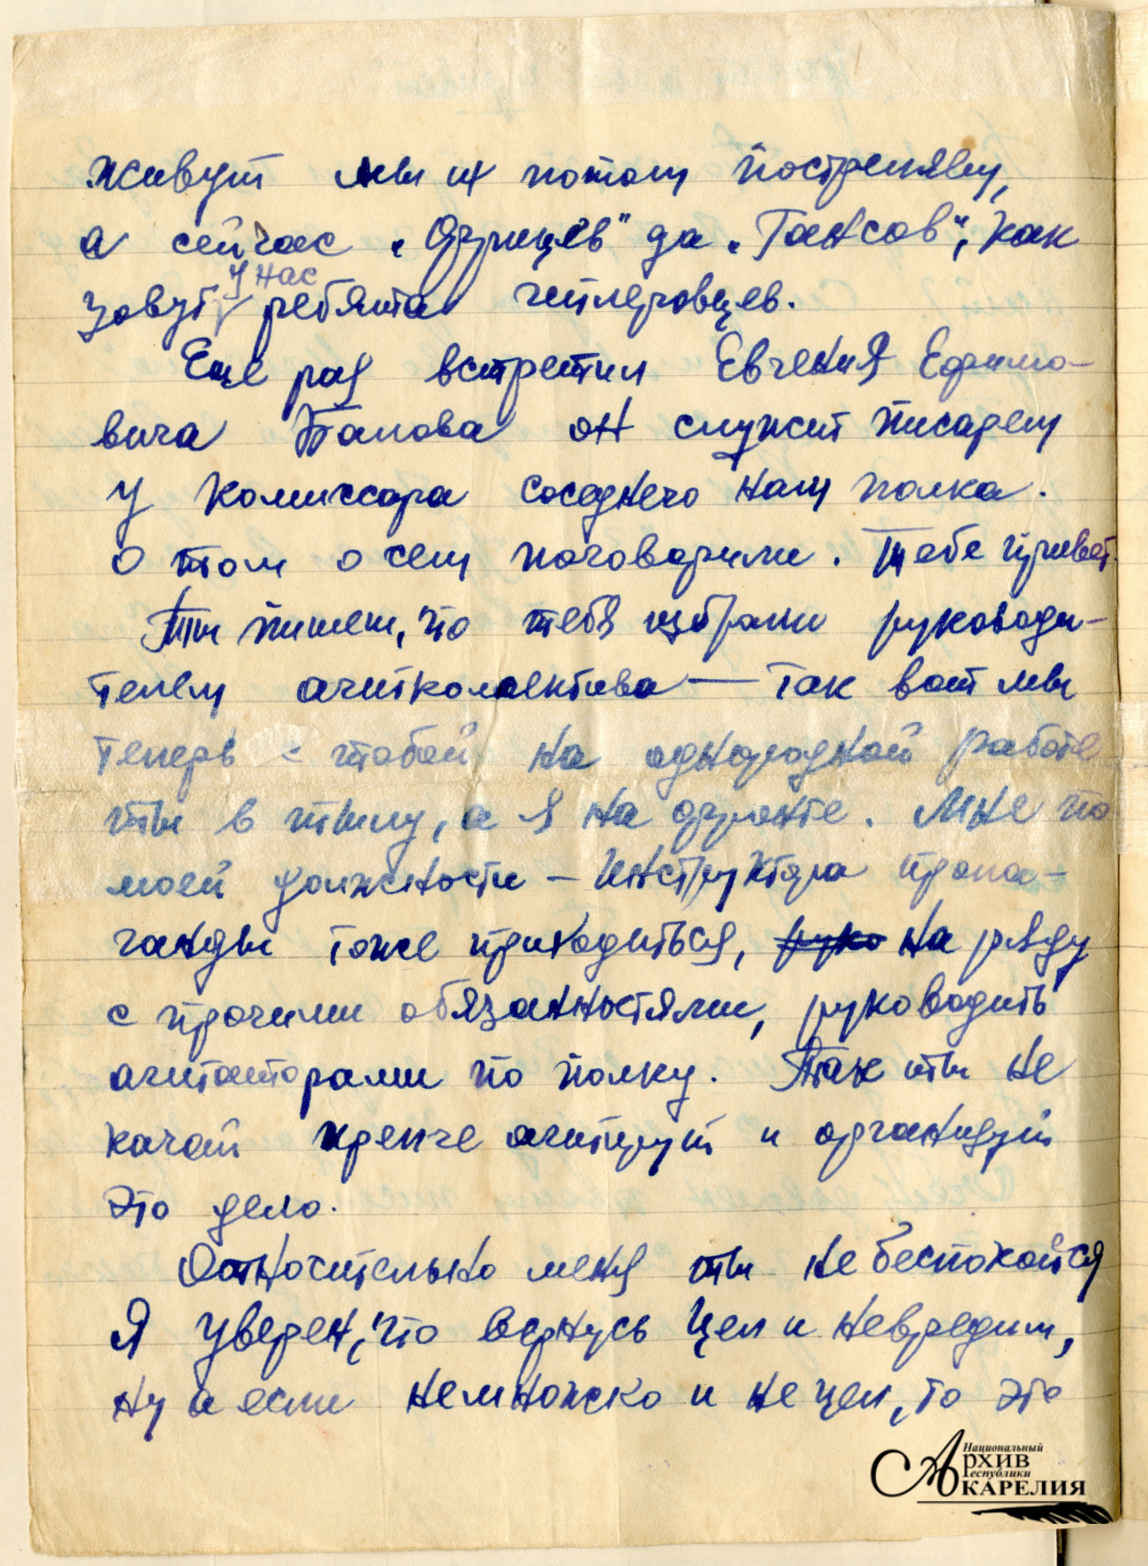 живут мы их потом постреляем,
а сейчас „Фрицев" да „Гансов", как
у нас
зовут ребята гитлеровцев.
Еще раз встретил Евгения Ефимо-
вича Попова он служит писарем
у комиссара соседнего нам полка.
О том о сем поговорили. Тебе привет.
Ты пишешь, что тебя избрали руководи-
телем агитколлектива — так вот мы
теперь с тобой на однородной работе
ты в тылу, а я на фронте. Мне по
моей должности — инструктора пропа-
ганды тоже приходиться, руко на ряду
с прочими обязанностями, руководить
агитаторами по полку. Так ты не
качай крепче агитируй и организуй
это дело.
Относительно меня ты не беспокойся
Я уверен, что вернусь цел и невредим,
ну а если немножско и не цел, то это
Национальный
АРХИВ
Республики
КАРЕЛИЯ